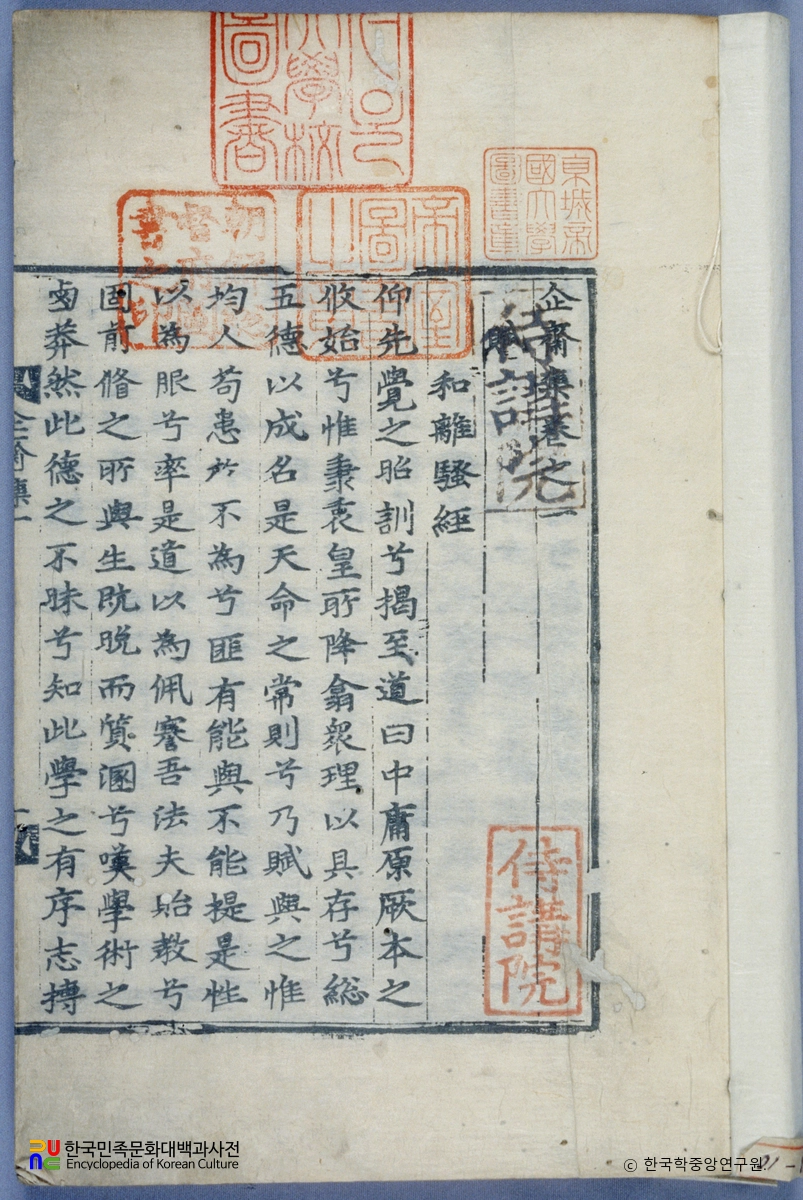 企齋集卷之一
賦
和離騷經
仰先覺之昭訓兮揭至道曰中庸原厥本之
攸始兮惟秉衷皇所降翕衆理以具存兮總
五德以成名是天命之常則兮乃賦與之惟
均人苟患於不為兮匪有能與不能禔是性
以為服兮率是道以為佩謇吾法夫貽教兮
固前脩之所與生旣晚而質溷兮嘆學術之
鹵莽然此德之不昧兮知此學之有序志摶
企齋集一
京城帝
國大學
圖書章
大學校
圖書
帝室
圖書
之章
朝鮮總
督府圖
書之印
侍講院
侍講院
한국민족문화대백과사전
Encyclopedia of Korean Culture
ⓒ 한국학중앙연구원